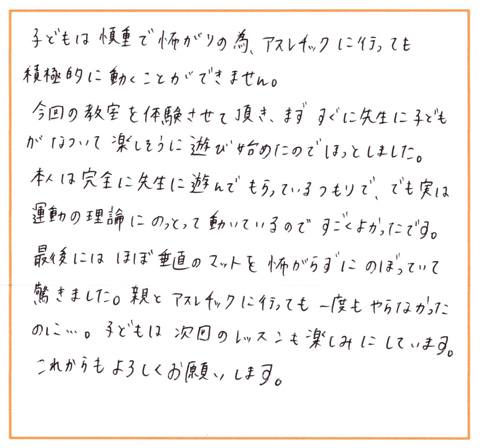 子どもは慎重で怖がりの為、アスレチックに行っても
積極的に動くことができません。
今回の教室を体験させて頂き、まず すぐに先生に子ども
がなついて 楽しそうに遊び始めたのでほっとしました。
本人は完全に先生に遊んでもらっているつもりで、でも実は
運動の理論にのっとって動いているので すごくよかったです。
最後には ほぼ垂直のマットを 怖がらずに のぼっていて
驚きました。親と アスレチックに行っても 一度も やらなかった
のに…。子どもは 次回のレッスンも楽しみにしています。
これからも よろしくお願いします。